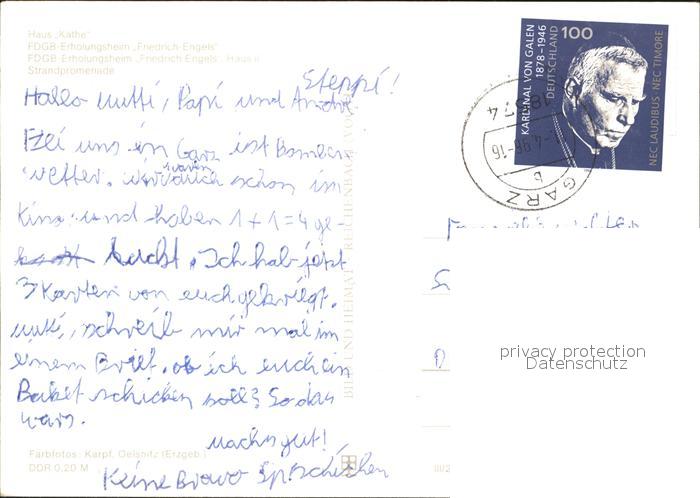 Haus „Käthe"
FDGB-Erholungsheim „Friedrich-Engels"
FDGB-Erholungsheim „Friedrich Engels", Haus II
Strandpromenade
Steppi!
Hallo Mutti, Papi und André
Bei uns in Garz ist Bomben
wetter. wir waren auch schon im
Kino und haben 1+1=4 ge-
kuckt. Ich hab jetzt
3 Karten von euch gekriegt.
Mutti, schreib mir mal im
einem Brief. ob ich euch ein
Baket schicken soll? So das
wars.
machs gut!
Keine Bravo
Farbfotos: Karpf, Oelsnitz (Erzgeb.)
DDR 0,20 M
III/2
BILD UND HEIMAT REICHENBACH
KARDINAL VON GALEN
1878-1946
DEUTSCHLAND
100
NEC LAUDIBUS NEC TIMORE
18574
-4.96-16
b
GARZ
privacy protection
Datenschutz